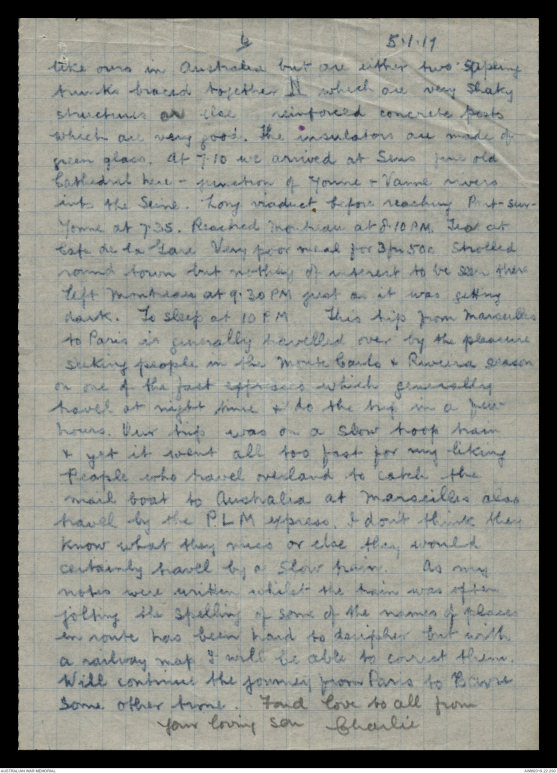 6 5.1.17
like ours in Australia but are either two sloping
trunks braced together N which are very shaky
structures or else reinforced concrete posts
which are very good. The insulators are made of
green glass. At 7.10 we arrived at Sens fine old
Cathedral here - junction of Yonne - Vanne rivers
into the Seine. Long viaduct before reaching Pont-sur-
Yonne at 7.35. Reached Montereau at 8.10 PM. Tea at
Cafe de la Gare Very poor meal for 3fr 50c Strolled
round town but nothing of interest to be seen there
left Montereau at 9.30 PM just as it was getting
dark. To sleep at 10 PM This trip from Marseilles
to Paris is generally travelled over by the pleasure
seeking people in the Monte Carlo & Riviera season
on one of the fast expresses which generally
travel at night time & do the trip in a few
hours. Our trip was on a slow troop train
& yet it went all too fast for my liking
People who travel overland to catch the
mail boat to Australia at Marseilles also
travel by the PLM express, I don't think they
know what they miss or else they would
certainly travel by a slow train. As my
notes were written whilst the train was often
jolting the spelling of some of the names of places
en route has been hard to decipher but with
a railway map I will be able to correct them.
Will continue the journey from Paris to Havre
some other time. Fond love to all from
Your loving son Charlie
AUSTRALIAN WAR MEMORIAL